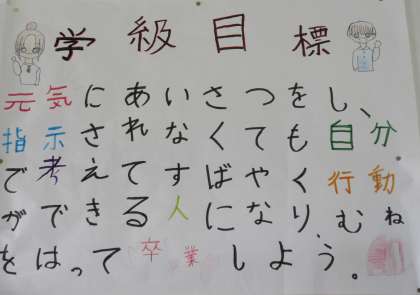 学級目標
元気にあいさつをし、
指示されなくても自分
で考えてすばやく行動
ができる人になり、むね
をはって卒業しよう。